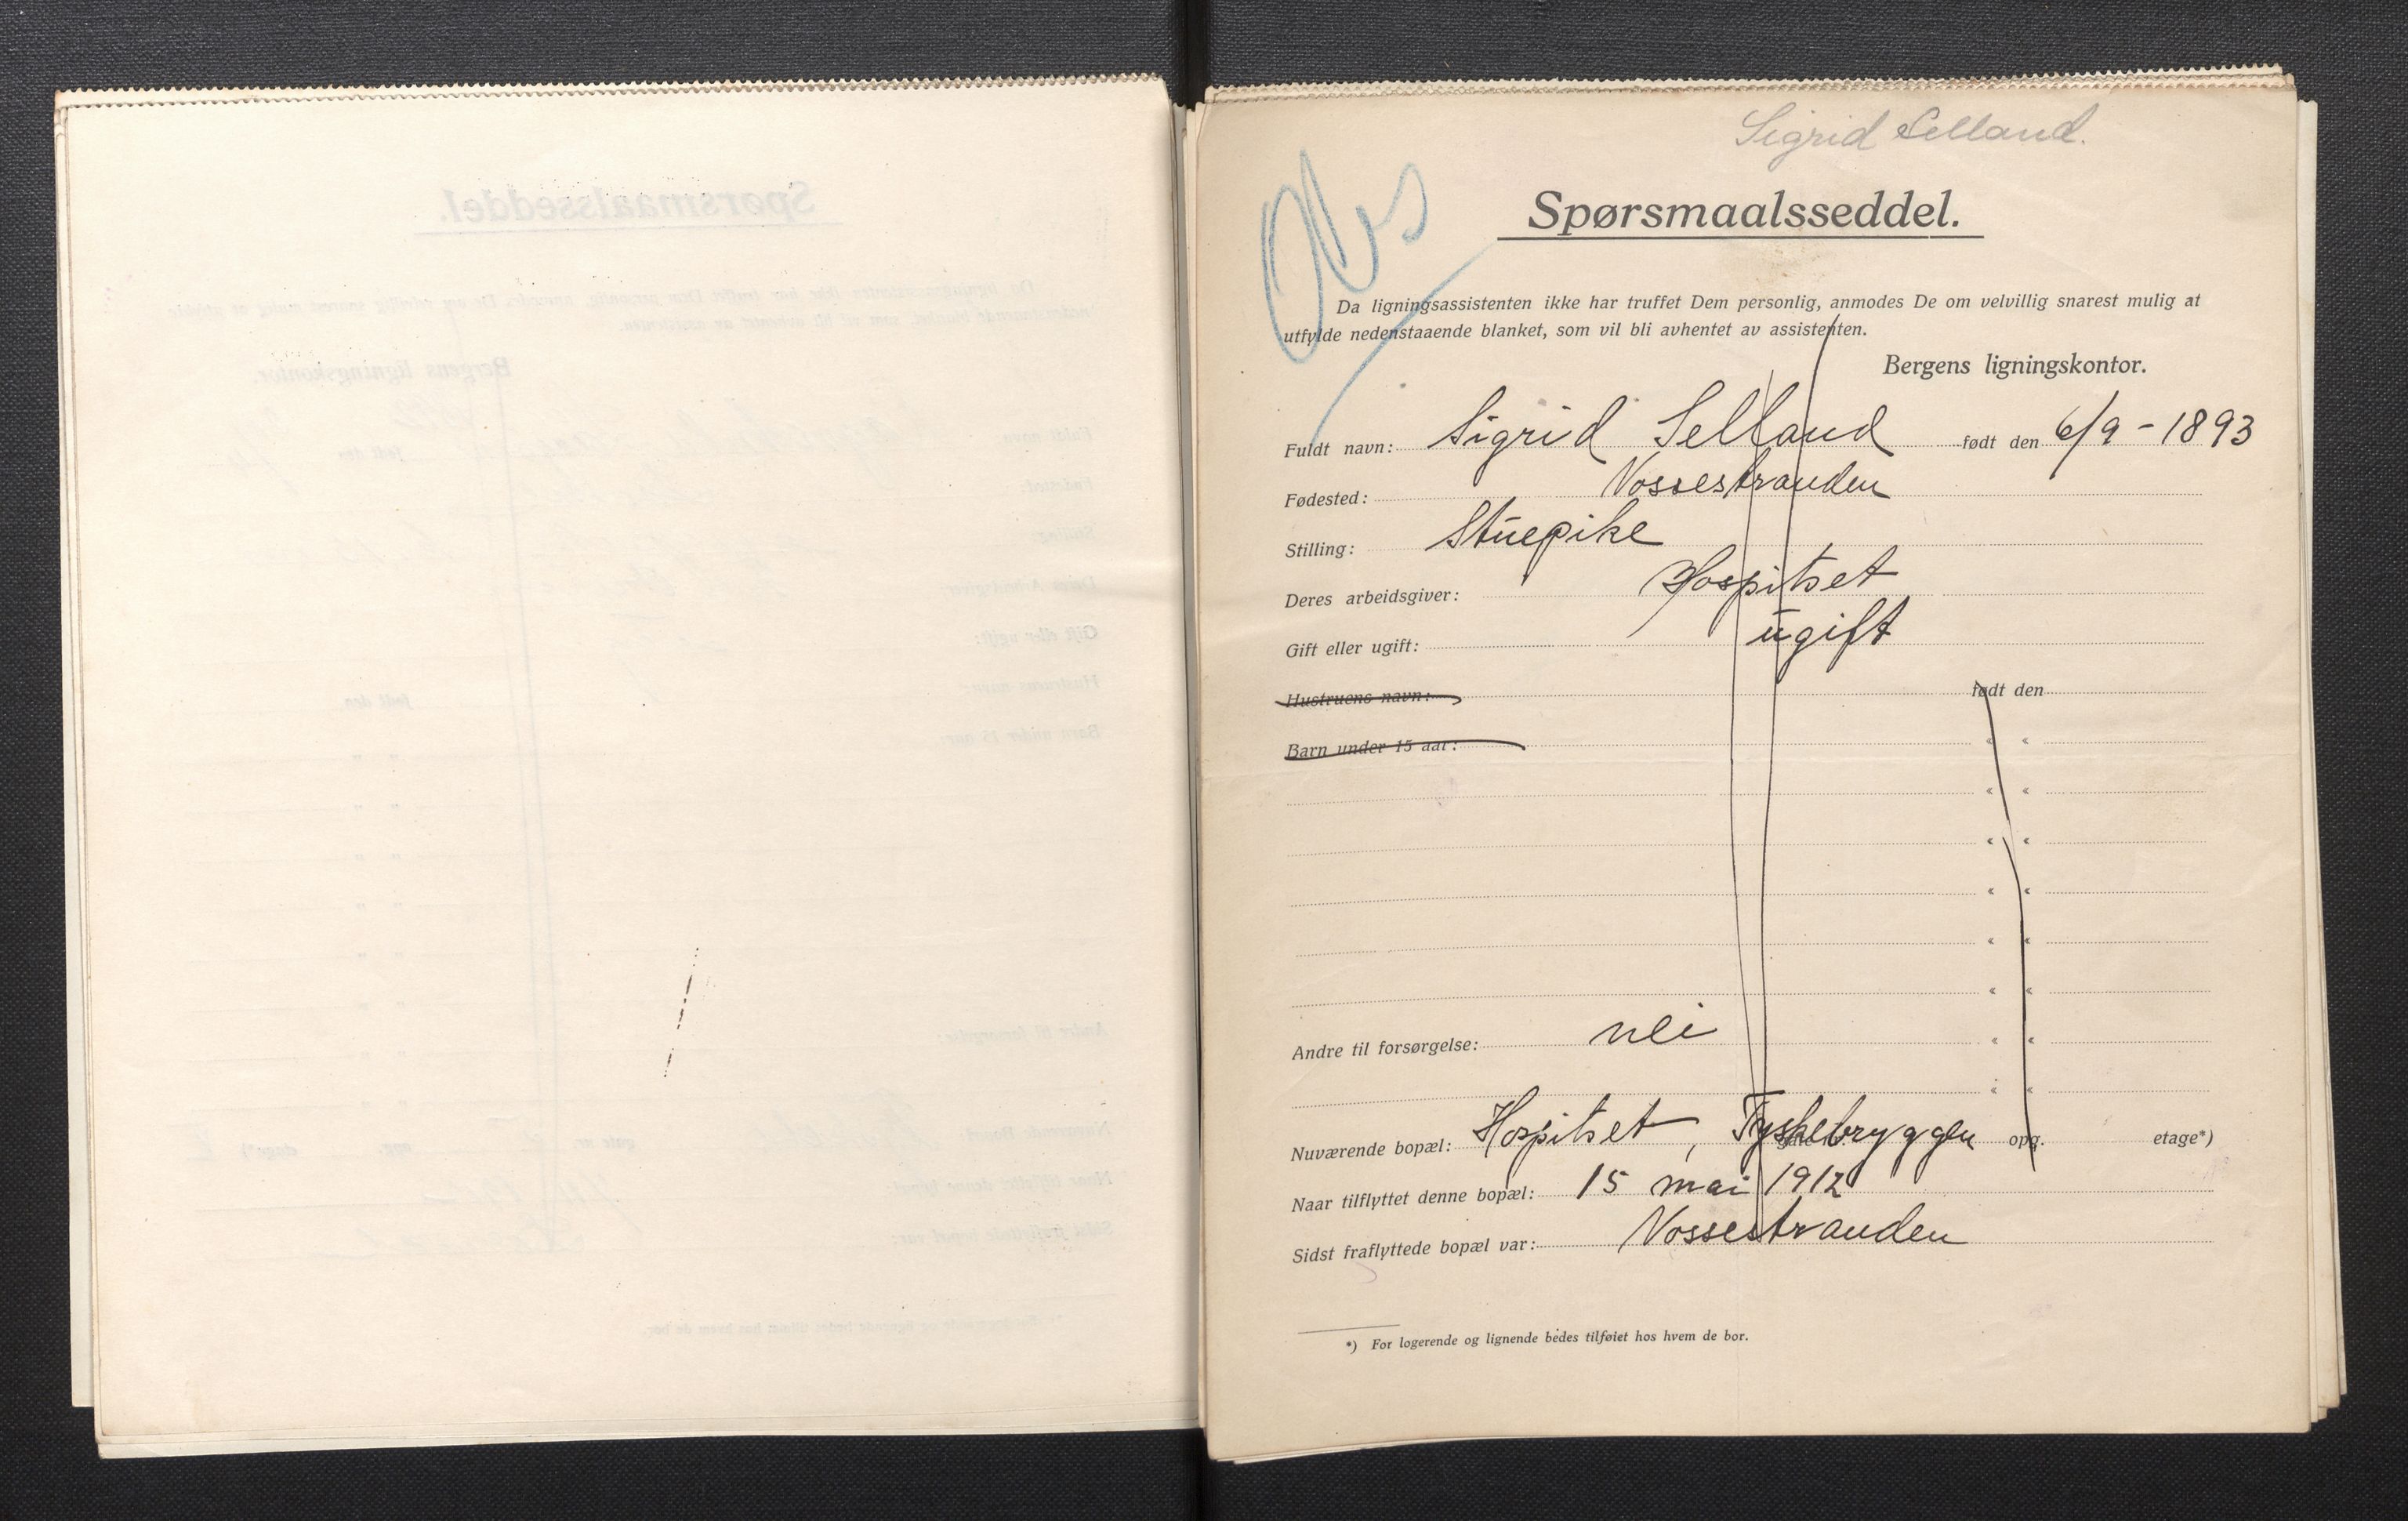 Sigrid Selland.
Spørsmaalsseddel.
Da ligningsassistenten ikke har truffet Dem personlig, anmodes De om velvillig snarest mulig at
utfylde nedenstaaende blanket, som vil bli avhentet av assistenten.
Bergens ligningskontor.
Fuldt navn: Sigrid Selland født den 6/9 - 1893
Fødested: Vossestranden
Stilling: Stuepike
Deres arbeidsgiver: Hospitset
Gift eller ugift: ugift
Hustruens navn: født den
Barn under 15 aar: « «
« «
« «
« «
« «
« «
Andre til forsørgelse: nei « «
« «
Nuværende bopæl: Hospitset, Tyskebryggen opg. etage*)
Naar tilflyttet denne bopæl: 15 mai 1912
Sidst fraflyttede bopæl var: Vossestranden
*) For logerende og lignende bedes tilføiet hos hvem de bor.